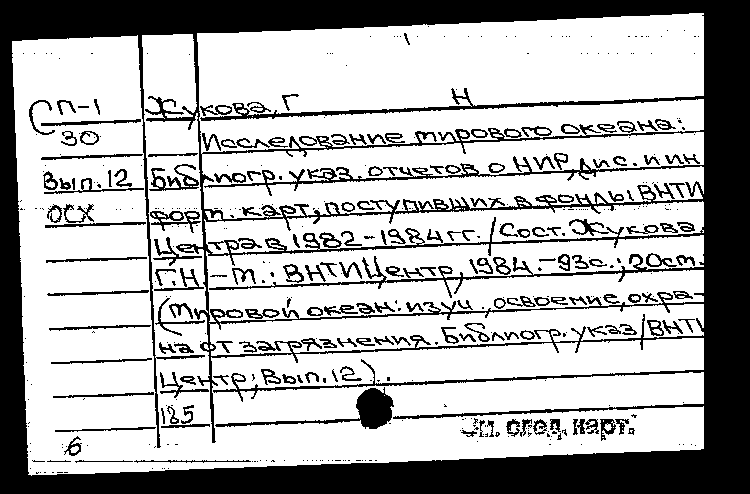 СП-1 Жукова, Г Н
30 Исследование мирового океана:
Вып.12 Библиогр. указ. отчетов о НИР, дис. и ин
ОСХ форм. карт, поступивших в фонды ВНТИ
Центра в 1982-1984 гг. / Сост. Жукова
Г.Н. - М.: ВНТИЦентр, 1984. - 93с.; 20см.
(Мировой океан: изуч., освоение, охра-
на от загрязнения. Библиогр. указ/ВНТИ
Центр; Вып.12).
185
См. след. карт.
6